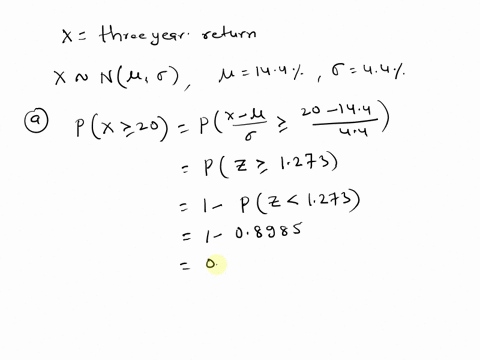 X = three year. return
X ~ N(μ, σ), μ = 14.4%, σ = 4.4%.
(a) P(X ≥ 20) = P((x-μ)/σ ≥ (20-14.4)/4.4)
= P(Z ≥ 1.273)
= 1 - P(Z < 1.273)
= 1 - 0.8985
= 0.